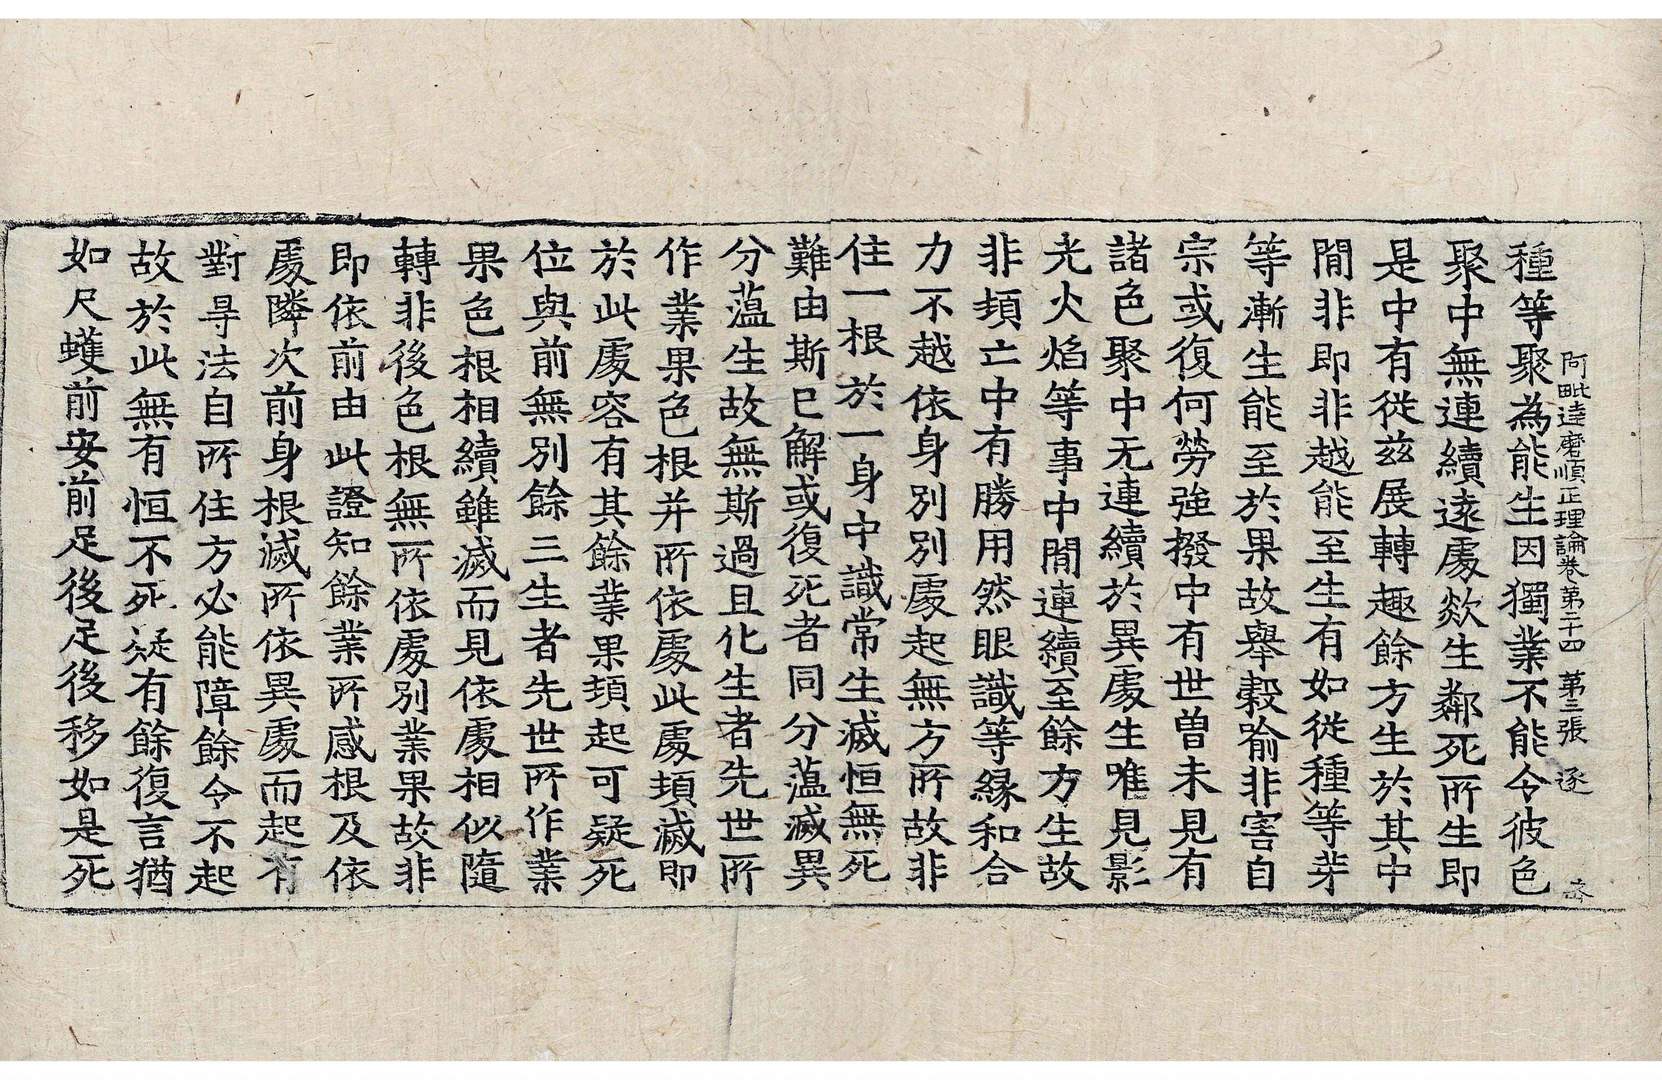 阿毗達磨順正理論卷第二十四 第三張 逐
種等聚為能生因獨業不能令彼色
聚中無連續遠處欻生鄰死所生即
是中有從兹展轉趣餘方生於其中
閒非即非越能至生有如從種等芽
等漸生能至於果故舉穀喻非害自
宗或復何勞強撥中有世曽未見有
諸色聚中无連續於異處生唯見影
光火焰等事中閒連續至餘方生故
非頓亡中有勝用然眼識等緣和合
力不越依身別別處起無方所故非
住一根於一身中識常生滅恒無死
難由斯已解或復死者同分薀滅異
分薀生故無斯過且化生者先世所
作業果色根并所依處此處頓滅即
於此處容有其餘業果頓起可疑死
位與前無別餘三生者先世所作業
果色根相續雖滅而見依處相似隨
轉非後色根無所依處別業果故非
即依前由此證知餘業所感根及依
處隣次前身根滅所依異處而起有
對㝵法自所住方必能障餘令不起
故於此無有恒不死疑有餘復言猶
如尺蠖前安前足後足後移如是死